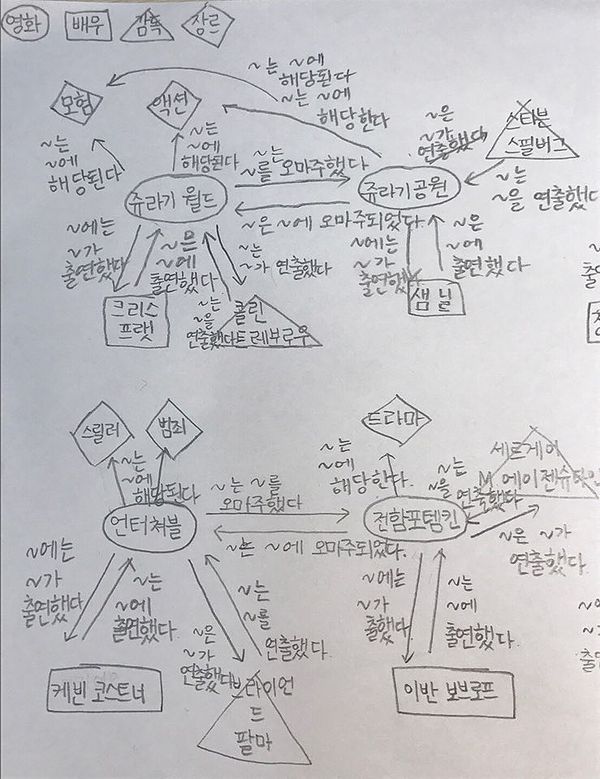 영화 배우 감독 장르
~는 ~에
해당된다
~는 ~에
해당한다
모험
액션
~는
~에
해당된다
~는
~에
해당된다
~은
~가
연출했다
스티븐
스필버그
~는
~를 오마주했다
~는
~을 연출했다
쥬라기 월드
쥬라기공원
~은 ~에 오마주되었다
~에는
~가
출연했다
~은
~에
출연했다
~는
~가 연출했다
~에는
~가
출연했다
~은
~에
출연했다
크리스
프랫
~는
~을
연출했다
콜린
트레보로우
샘 닐
스릴러
범죄
드라마
~는
~에
해당된다
~는
~에
해당한다.
세르게이
M 에이젠슈타인
~는
~을 연출했다
~는 ~를
오마주했다
언터쳐블
전함포템킨
~는 ~에 오마주되었다.
~은 ~가
연출했다.
~에는
~가
출연했다
~는
~에
출연했다.
~는
~를
연출했다.
~은
~가
연출했다
~에는
~가
출했다
~는
~에
출연했다.
케빈 코스트너
브라이언
드
팔마
이반 보브로프